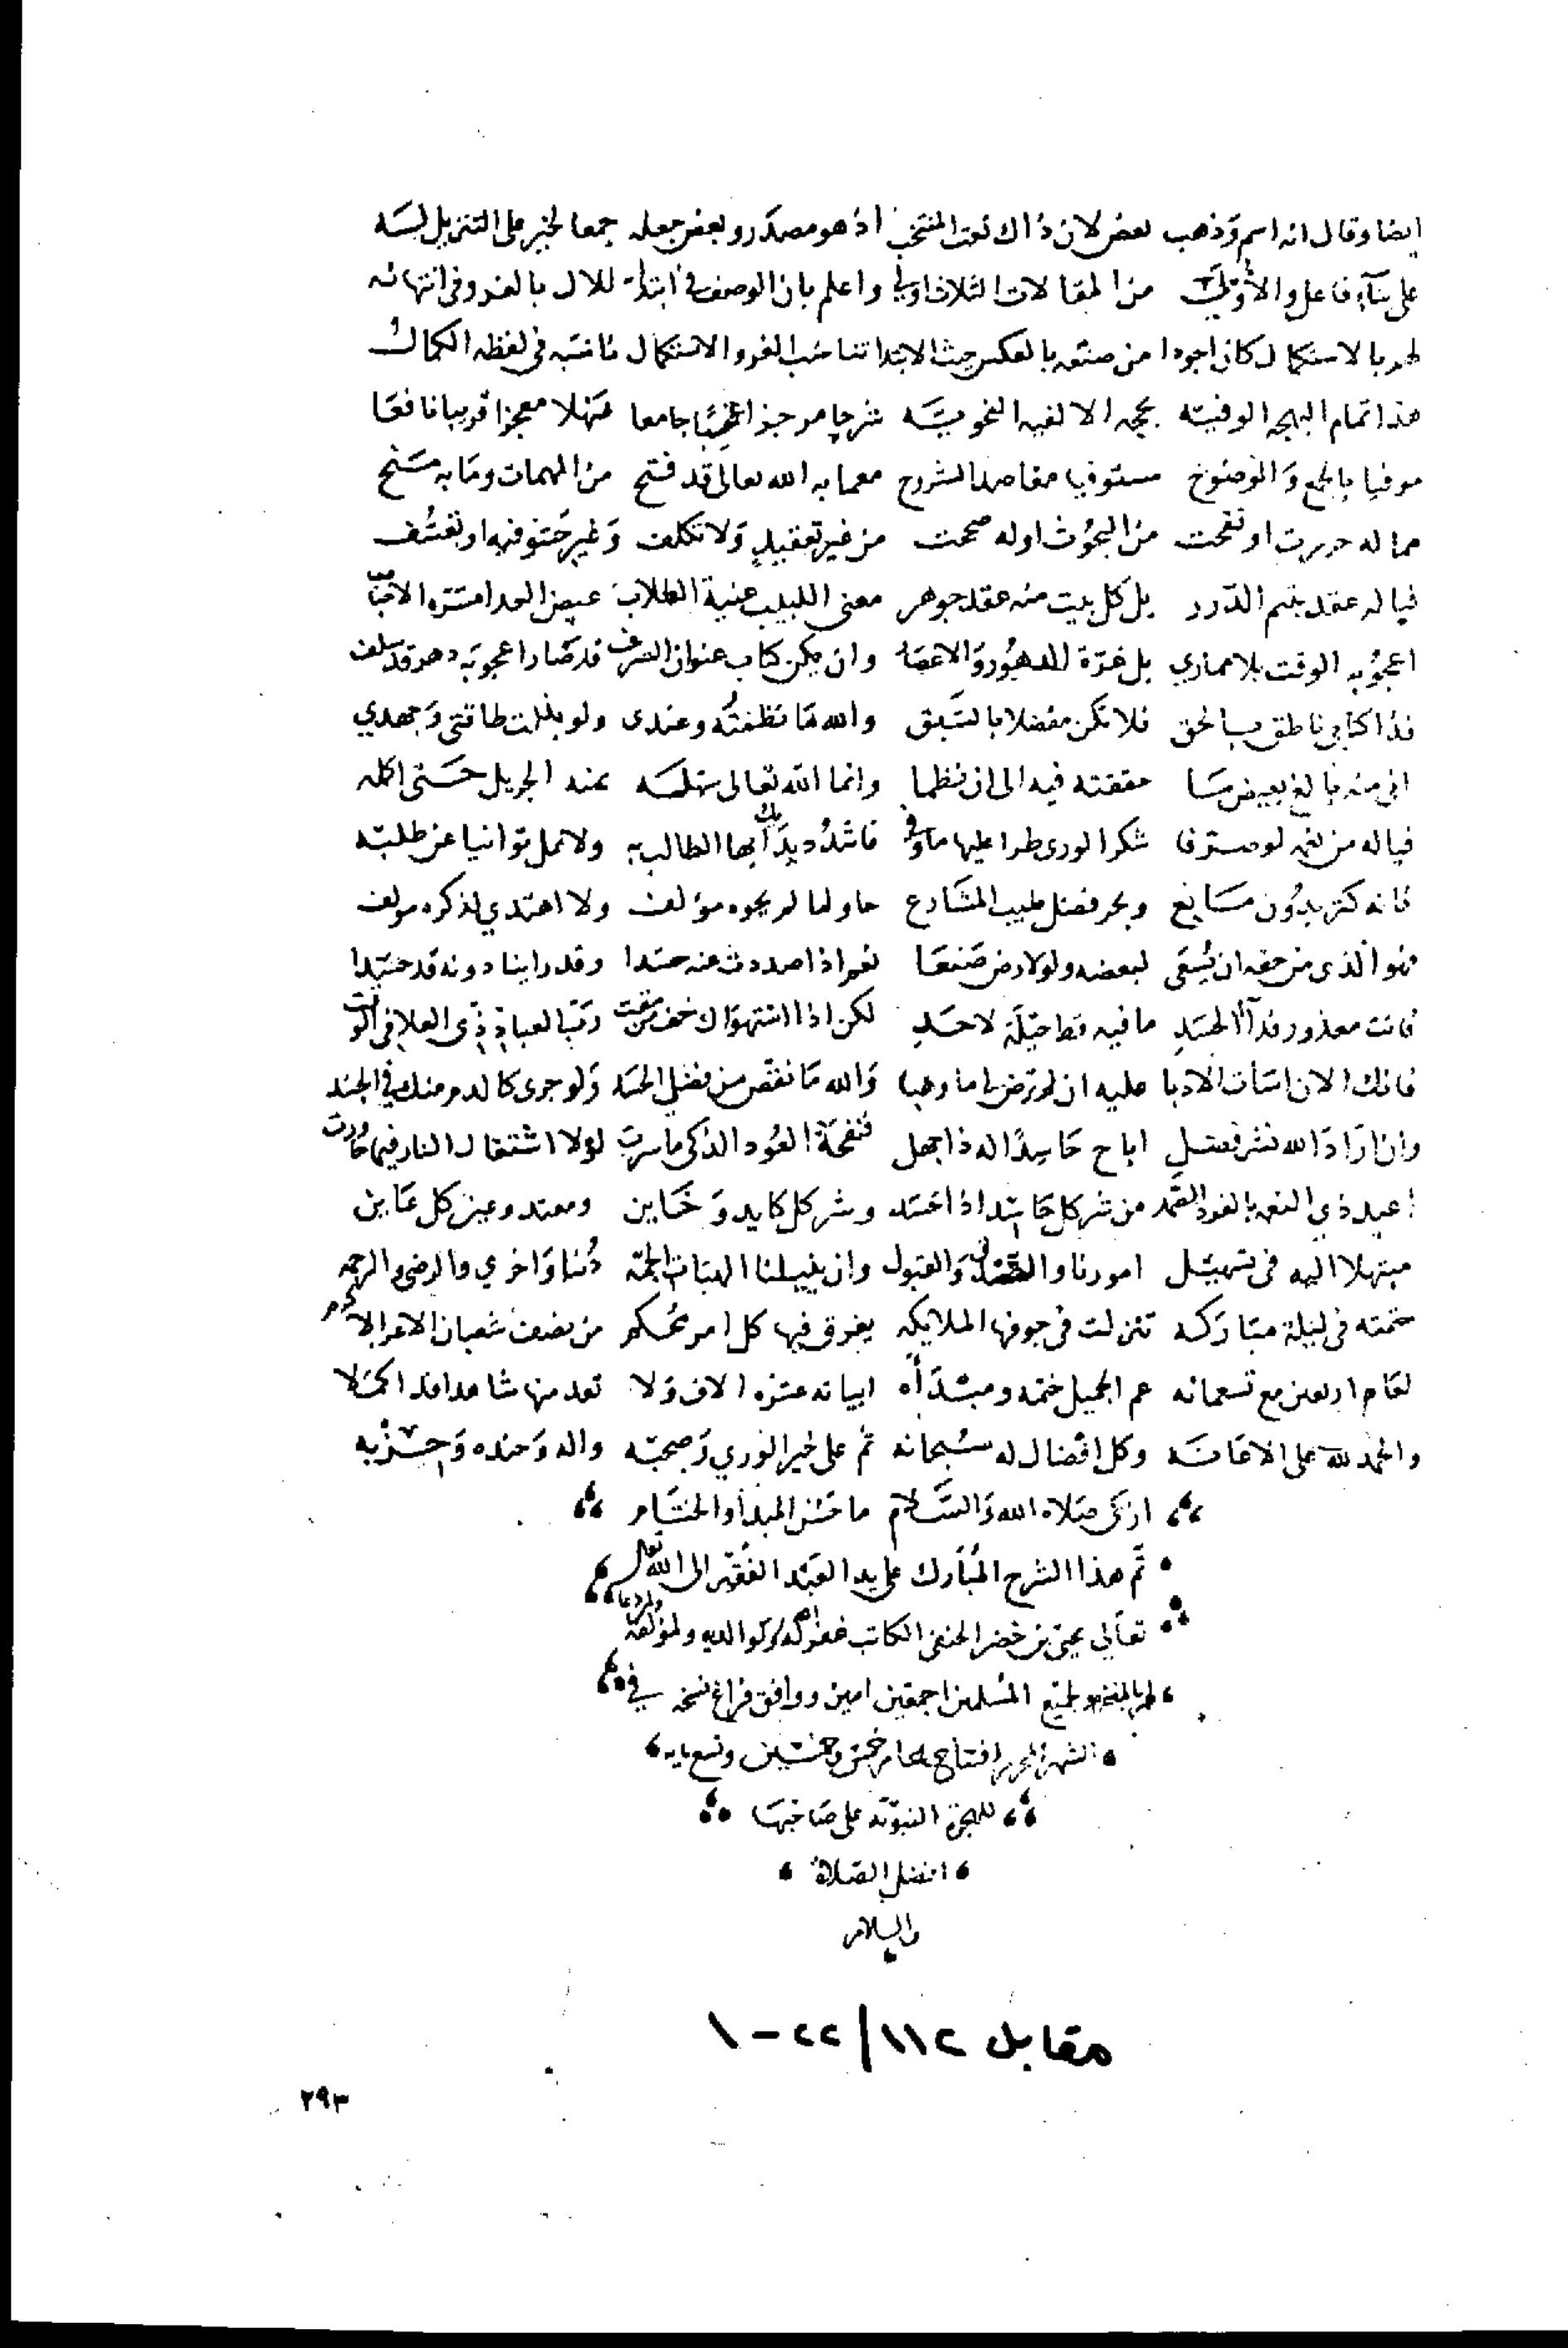 ايضا وقال انه اسم وذهب بعض لان ذاك نعت المنتخب اذ هو مصدر وبعض جعله جمعا لخير على التنزيل له
على بناء فاعل والأول من المقالات الثلاث اولى واعلم بان الوصف في ابتداء للال بالغر وفي انتهائه
لهم بالاستكمال كان اجودا من صنعه بالعكس حيث الابتدا تناسب الغر والاستكمال ناسبه في لفظه الكمال
هذا تمام البهجه الوفيه بحجه الالفيه النحويه شرحا موجزا جامعا سهلا معجزا قريبا نافعا
موفيا بالجمع والوضوح مستوفيا مقاصد الشروح مع ما به الله تعالى قد فتح من المهمات وما به سنح
مما له حررت او نقحت من البحوث او له صححت من غير تعقيد ولا تكلف وغير حشو فيه او تعسف
فيا له عقد يتيم الدرر بل كل بيت منه عقد جوهر مغني اللبيب غنية الطلاب غيض العدا مسرة الاحباب
اعجوبه الوقت بلا مماري بل غرة الدهور والاعصار وان يكن كتاب عنوان الشرف قد صار اعجوبة دهر قد سلف
فذا كتابي ناطق بالحق فلا تكن مفضلا بالسبق والله ما نظمته وعندى ولو بذلت طاقتي وجهدي
اني منه بالغ بعيض ما حققته فيه الى ان نظما وانما الله تعالى سهله بمنه الجزيل حتى اكمله
فيا له من نعمه لو صرفا شكر الورى طرا عليها ما وفى فاشدد يديك ايها الطالب به ولا تمل توانيا عن طلبه
فانه كنز بدون مانع وبحر فضل طيب المشارع حاو لما لم يحوه مؤلف ولا اهتدي لذكره مولف
فهو الذى من حقه ان يسعى لبعضه ولو لارض صنعا نعم اذا صددت عنه حسدا وقد راينا دونه قد حسدا
فانت معذور فداء الحسد ما فيه قط حيلة لاحد لكن اذا استهواك خف من مقت رب العباد ذي العلا في الوقت
فانك الان اسات الادبا عليه ان لم ترض لي ما وهبا والله ما نقص من فضلي الحسد ولو جرى كالدم منك في الجسد
وان اراد الله نشر فضل اباح حاسدا له ذا جهل فنفحة العود الذكي ما سرت لولا اشتعال النار فيما جاورت
اعيذ ذي النعمه بالفرد الصمد من شر كل حاسد اذا حسد وشر كل كايد وخاين ومعتد وعين كل عاين
مبتهلا اليه في تسهيل امورنا والقصد والقبول وان ينيلنا الهبات الجمه دنيا واخري والرضى والرحمه
ختمته في ليلة مباركه تنزلت في جوفها الملايكه يفرق فيها كل امر محكم من نصف شعبان الاغر الاكرم
لعام اربعين مع تسعمائه عم الجميل ختمه ومبداه ابياته عشره الاف ولا تعد منها شاهدا قد اكملا
والحمد لله على الاعانه وكل افضال له سبحانه ثم على خير الوري وصحبه واله وجنده وحزبه
ازكى صلاه الله والسلام ما حسن المبدأ والختام
تم هذا الشرح المبارك على يد العبد الفقير الى الله
تعالى يحيى بن خضر الحنفي الكاتب غفر الله له ولوالديه ولمؤلفه
لهم بالمغفره ولجميع المسلمين اجمعين امين ووافق فراغ نسخه في
الشهر المحرم افتتاح عام خمس وخمسين وتسع مايه
للهجرة النبويه على صاحبها
افضل الصلاة
والسلام
مقابل ١١٢/٢٢-١
٢٩٣